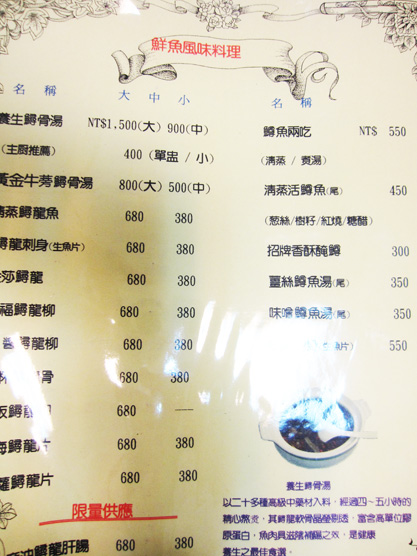 鮮魚風味料理
名 稱 大 中 小
養生鱘骨湯 NT$1,500(大) 900(中)
(主廚推薦) 400 (單盅 / 小)
黃金牛蒡鱘骨湯 800(大) 500(中)
清蒸鱘龍魚 680 380
鱘龍刺身(生魚片) 680 380
莎鱘龍 680 380
福鱘龍柳 680 380
醬鱘龍柳 680 380
骨 680 380
板鱘龍 680 —
海鱘龍片 680 380
蘿鱘龍片 680 380
限量供應
油鱘龍肝腸 680 380
名 稱
鱒魚兩吃 NT$ 550
(清蒸 / 煲湯)
清蒸活鱒魚(尾) 450
(葱絲/樹籽/紅燒/糖醋)
招牌香酥醃鱒 300
薑絲鱒魚湯(尾) 350
味噌鱒魚湯(尾) 350
魚片) 550
養生鱘骨湯
以二十多種高級中藥材入料，經過四～五小時的
精心熬煮，其鱘龍軟骨晶瑩剔透，富含高單位膠
原蛋白，魚肉具滋陰補腦之效，是健康
養生之最佳食選。